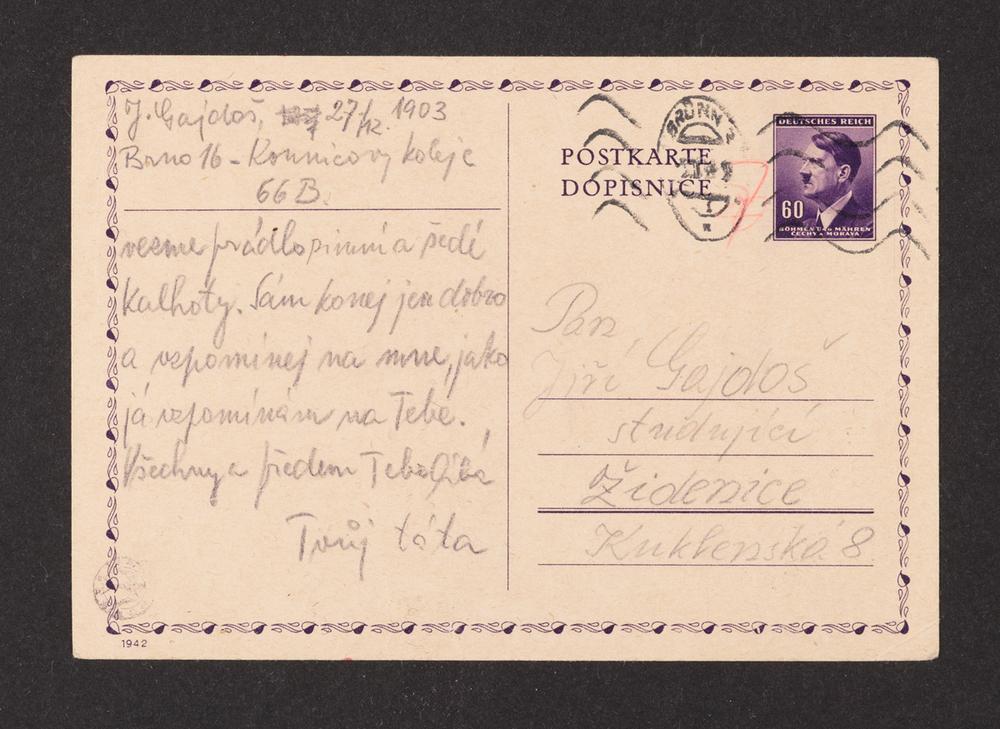 J. Gajdoš, 27/12. 1903
Brno 16 - Kounicovy koleje
66 B.
vezme prádlo zimní a šedé
kalhoty. Sám konej jen dobro
a vzpomínej na mne, jako
já vzpomínám na Tebe.
Všechny a předem Tebe líbá
Tvůj táta
1942
POSTKARTE
DOPISNICE
BRÜNN 2
DEUTSCHES REICH
60
BÖHMEN UND MÄHREN
ČECHY A MORAVA
Pan
Jiří Gajdoš
studující
Židenice
Kuklenská 8